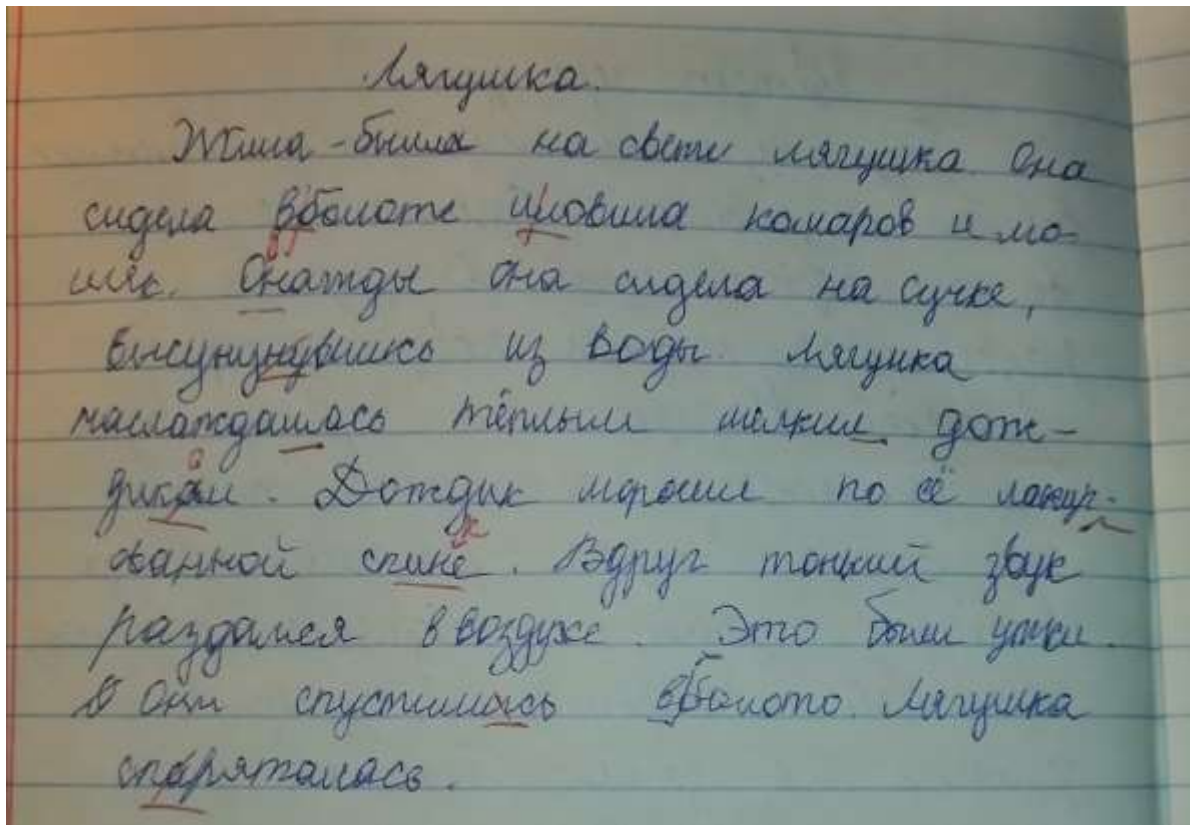 Лягушка.
Жила-была на свети лягушка. Она
сидела вболоте иловила комаров и мо-
шек. Онажды она сидела на сучке,
высунунувшись из воды. Лягушка
наслаждалась тёплым мелким дож-
дикам. Дождик моросил по её лакир-
ованной спине. Вдруг тонкий звук
раздался в воздухе. Это были утки.
Они спустилась вболото. Лягушка
спряталась.